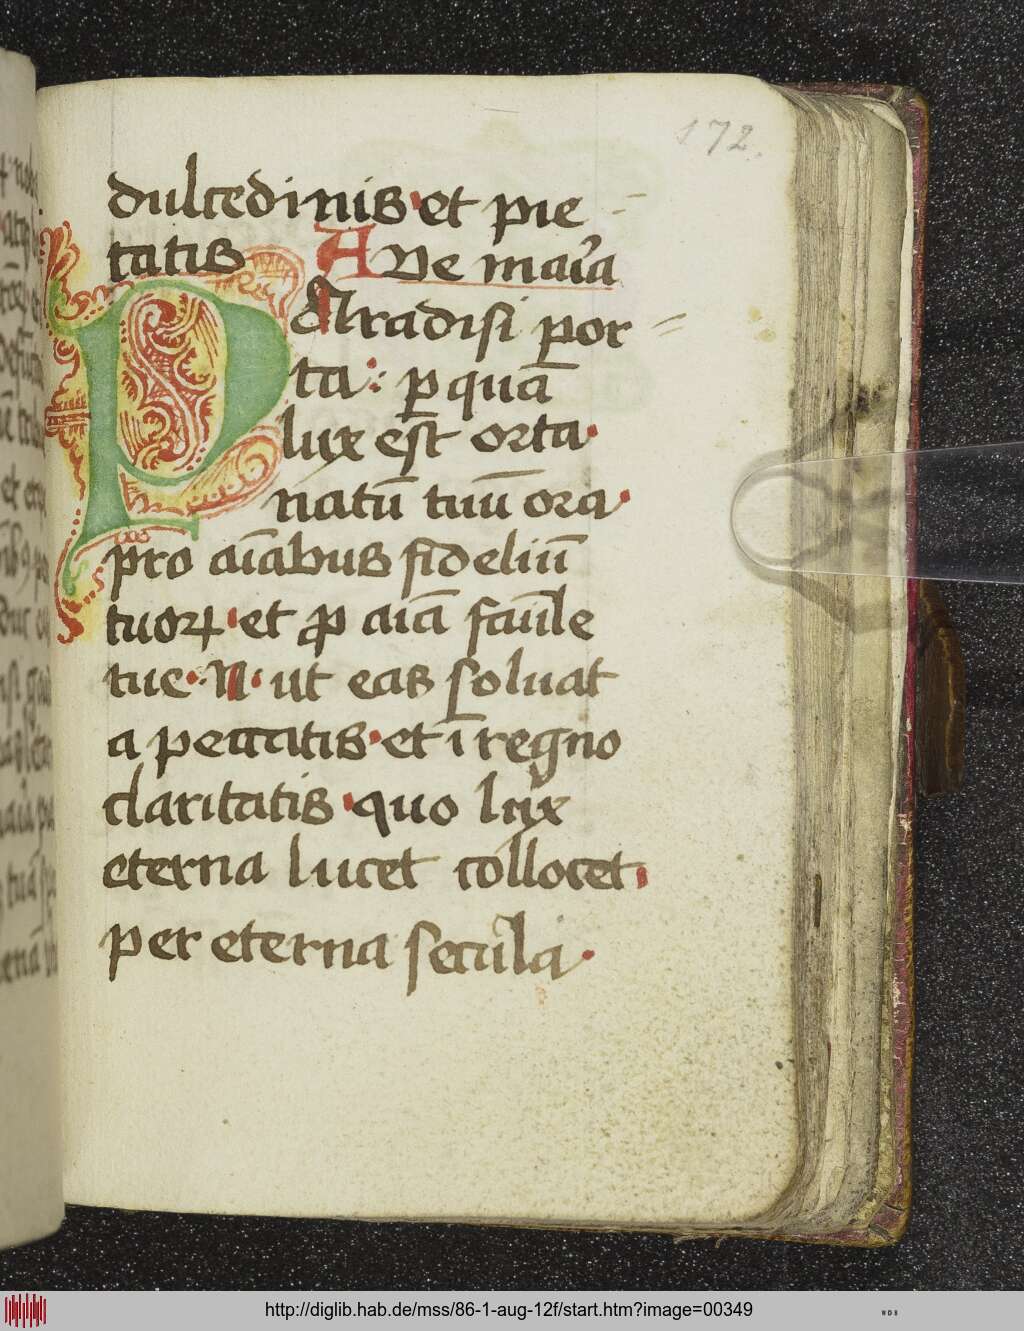 172.
dulcedinis et pie=
tatis Ave maīa
PAradisi por=
ta: ꝑ quā
lux est orta
natū tuū ora
pro aīabus fideliū
tuoꝝ et ꝓ aīa faūle
tue · N · ut eas soluat
a peccatis et ī regno
claritatis quo lux
eterna lucet collocet
per eterna secula
http://diglib.hab.de/mss/86-1-aug-12f/start.htm?image=00349